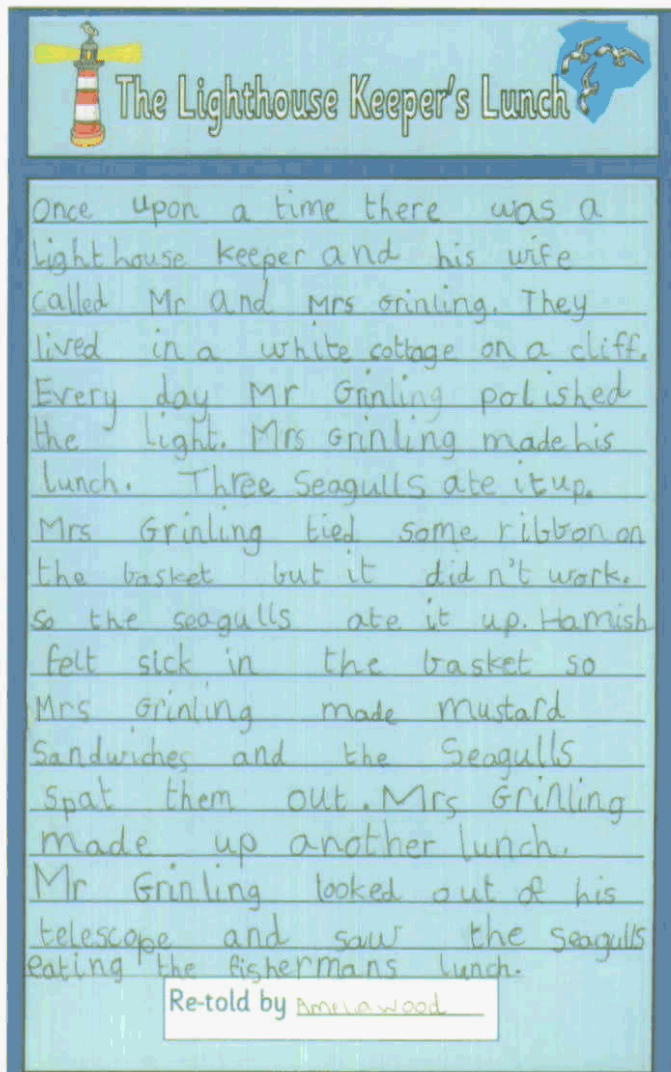 The Lighthouse Keeper's Lunch
Once upon a time there was a
Lighthouse keeper and his wife
called Mr and Mrs Grinling. They
lived in a white cottage on a cliff.
Every day Mr Grinling polished
the light. Mrs Grinling made his
lunch. Three Seagulls ate it up.
Mrs Grinling tied some ribbon on
the basket but it did n't work.
So the seagulls ate it up. Hamish
felt sick in the basket so
Mrs Grinling made mustard
Sandwiches and the Seagulls
Spat them out. Mrs Grinling
made up another lunch.
Mr Grinling looked out of his
telescope and saw the seagulls
eating the fishermans lunch.
Re-told by Amelia wood